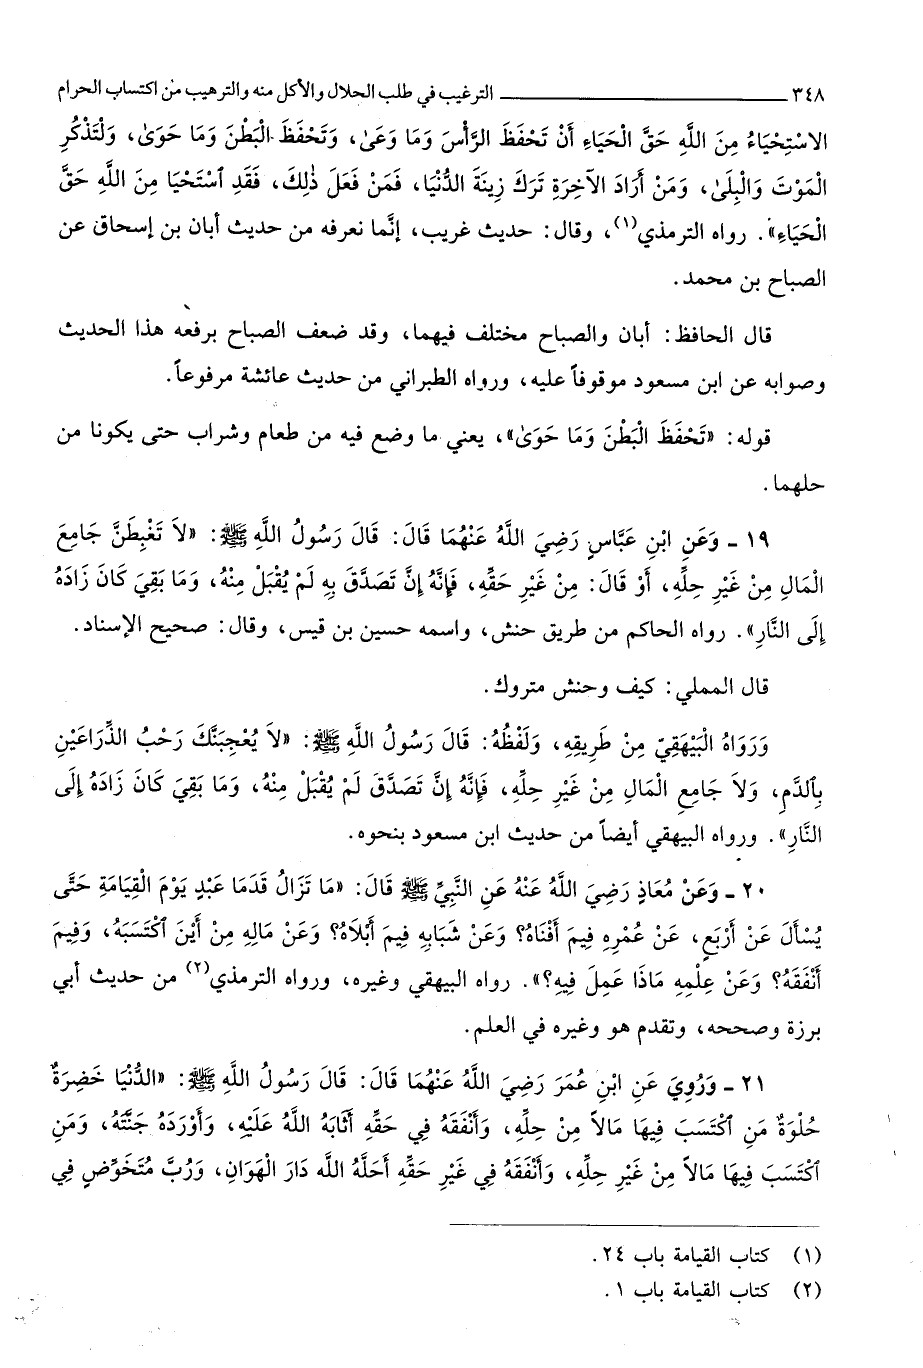 ٣٤٨ ــــــــــ الترغيب في طلب الحلال والأكل منه والترهيب من اكتساب الحرام
الاسْتِحْيَاءُ مِنَ اللَّهِ حَقَّ الْحَيَاءِ أَنْ تَحْفَظَ الرَّأْسَ وَمَا وَعَىٰ، وَتَحْفَظَ الْبَطْنَ وَمَا حَوَىٰ، وَلْتَذْكُرِ
الْمَوْتَ وَالْبِلَىٰ، وَمَنْ أَرَادَ الآخِرَةِ تَرَكَ زِينَةَ الدُّنْيَا، فَمَنْ فَعَلَ ذٰلِكَ، فَقَدِ ٱسْتَحْيَا مِنَ اللَّهِ حَقَّ
الْحَيَاءِ». رواه الترمذي(١)، وقال: حديث غريب، إنَّما نعرفه من حديث أبان بن إسحاق عن
الصباح بن محمد.
قال الحافظ: أبان والصباح مختلف فيهما، وقد ضعف الصباح برفعه هذا الحديث
وصوابه عن ابن مسعود موقوفاً عليه، ورواه الطبراني من حديث عائشة مرفوعاً.
قوله: «تَحْفَظَ الْبَطْنَ وَمَا حَوَىٰ»، يعني ما وضع فيه من طعام وشراب حتى يكونا من
حلهما.
١٩ ـ وَعَنِ ابْنِ عَبَّاسٍ رَضِيَ اللَّهُ عَنْهُمَا قَالَ: قَالَ رَسُولُ اللَّهِ ﷺ: «لاَ تَغْبِطَنَّ جَامِعَ
الْمَالِ مِنْ غَيْرِ حِلِّهِ، أَوْ قَالَ: مِنْ غَيْرِ حَقِّهِ، فَإِنَّهُ إِنْ تَصَدَّقَ بِهِ لَمْ يُقْبَلْ مِنْهُ، وَمَا بَقِيَ كَانَ زَادَهُ
إِلَى النَّارِ». رواه الحاكم من طريق حنش، واسمه حسين بن قيس، وقال: صحيح الإسناد.
قال المملي: كيف وحنش متروك.
وَرَوَاهُ الْبَيْهَقِيّ مِنْ طَرِيقِهِ، وَلَفْظُهُ: قَالَ رَسُولُ اللَّهِ ﷺ: «لاَ يُعْجِبَنَّكَ رَحْبُ الذِّرَاعَيْنِ
بِٱلدَّمِ، وَلاَ جَامِعِ الْمَالِ مِنْ غَيْرِ حِلِّهِ، فَإِنَّهُ إِنْ تَصَدَّقَ لَمْ يُقْبَلْ مِنْهُ، وَمَا بَقِيَ كَانَ زَادَهُ إِلَى
النَّارِ». ورواه البيهقي أيضاً من حديث ابن مسعود بنحوه.
٢٠ ـ وَعَنْ مُعَاذٍ رَضِيَ اللَّهُ عَنْهُ عَنِ النَّبِيِّ ﷺ قَالَ: «مَا تَزَالُ قَدَمَا عَبْدٍ يَوْمَ الْقِيَامَةِ حَتَّى
يُسْأَلَ عَنْ أَرْبَعٍ، عَنْ عُمْرِهِ فِيمَ أَفْنَاهُ؟ وَعَنْ شَبَابِهِ فِيمَ أَبْلاَهُ؟ وَعَنْ مَالِهِ مِنْ أَيْنَ ٱكْتَسَبَهُ، وَفِيمَ
أَنْفَقَهُ؟ وَعَنْ عِلْمِهِ مَاذَا عَمِلَ فِيهِ؟». رواه البيهقي وغيره، ورواه الترمذي(٢) من حديث أبي
برزة وصححه، وتقدم هو وغيره في العلم.
٢١ ـ وَرُوِيَ عَنِ ابْنِ عُمَرَ رَضِيَ اللَّهُ عَنْهُمَا قَالَ: قَالَ رَسُولُ اللَّهِ ﷺ: «الدُّنْيَا خَضِرَةٌ
حُلْوَةٌ مَنِ ٱكْتَسَبَ فِيهَا مَالاً مِنْ حِلِّهِ، وَأَنْفَقَهُ فِي حَقِّهِ أَثَابَهُ اللَّهُ عَلَيْهِ، وَأَوْرَدَهُ جَنَّتَهُ، وَمَنِ
ٱكْتَسَبَ فِيهَا مَالاً مِنْ غَيْرِ حِلِّهِ، وَأَنْفَقَهُ فِي غَيْرِ حَقِّهِ أَحَلَّهُ اللَّه دَارَ الْهَوَانِ، وَرُبَّ مُتَخَوِّضٍ فِي
(١) كتاب القيامة باب ٢٤.
(٢) كتاب القيامة باب ١.